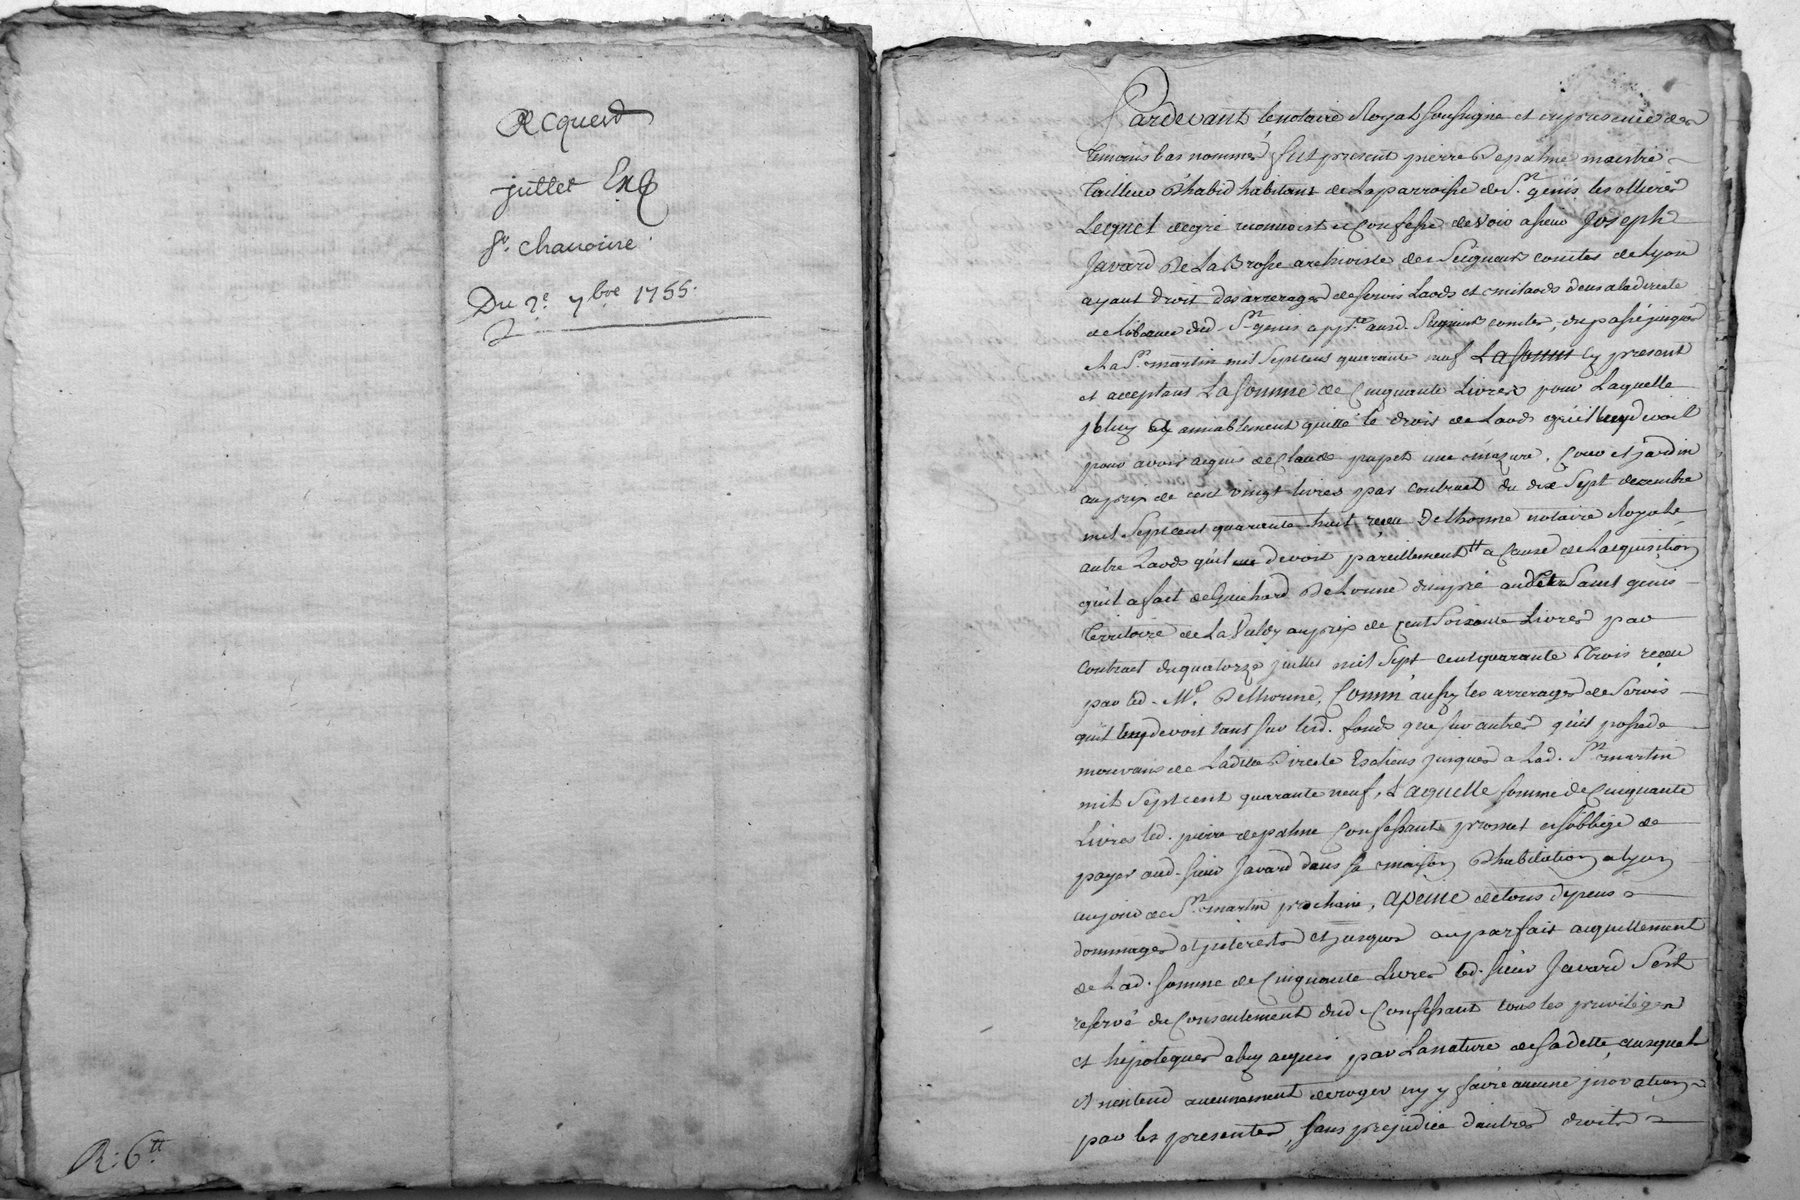 Acquest
juillet Exp
Sr. chanoine
Du 2e. 7bre 1755.
R: 6tt
Pardevant le notaire Royal soussigné et en presence des
temoins bas nommés fut present pierre Depalme maistre
tailleur d'habid habitant de la parroisse de St. genis les ollieres
Lequel de gré reconnoist et Confesse devoir a sieur Joseph
Javard De La Brosse archiviste des Seigneurs comtes de Lyon
ayant droit des arrerages de servis Laods et milaods deus a la directe
dud. St. genis aux d. Seigneurs comtes, du passé jusques
a La St. martin mil sept cens quarante neuf La somme Cy present
et acceptant La somme de Cinquante Livres pour Laquelle
il luy a amiablement quitté le droit de Laods qu'il luy devoit
pour avoir acquis de Claude papet une mazure, Cour et jardin
au prix de cent vingt livres par contract du dix sept decembre
mil sept cent quarante huit receu Delhorme notaire Royal
autre Laods qu'il devoit pareillement a Cause de Lacquisition
qu'il a fait de Guichard DeLorme d'un pré aud. Saint genis
Territoire de La au prix de Cent Soixante Livres par
Contract du quatorze juillet mil sept cent quarante trois receu
par led. Me. Delhorme, Comm'aussy les arrerages de Servis
qu'il luy devoit tant sur lesd. fonds que sur autres qu'il possede
mouvans de Ladite Directe Escheus jusques a Lad. St. martin
mil sept cent quarante neuf, Laquelle somme de Cinquante
Livres led. pierre depalme Confessant promet et s'obbige de
payer aud. sieur Javard dans sa maison d'habitation a Lyon
au jour de St. martin prochain, a peine de tous depens
dommages et jnterests et jusques au parfait acquittement
de Lad. somme de Cinquante Livres led. sieur Javard s'est
reservé du Consentement dud. Confessant tous les privileges
et hipoteques a luy acquis par La nature de sa dette, ausquels
il n'entend aucunement deroger ny y faire aucune jnovation
par les presentes, sans prejudice d'autres droits